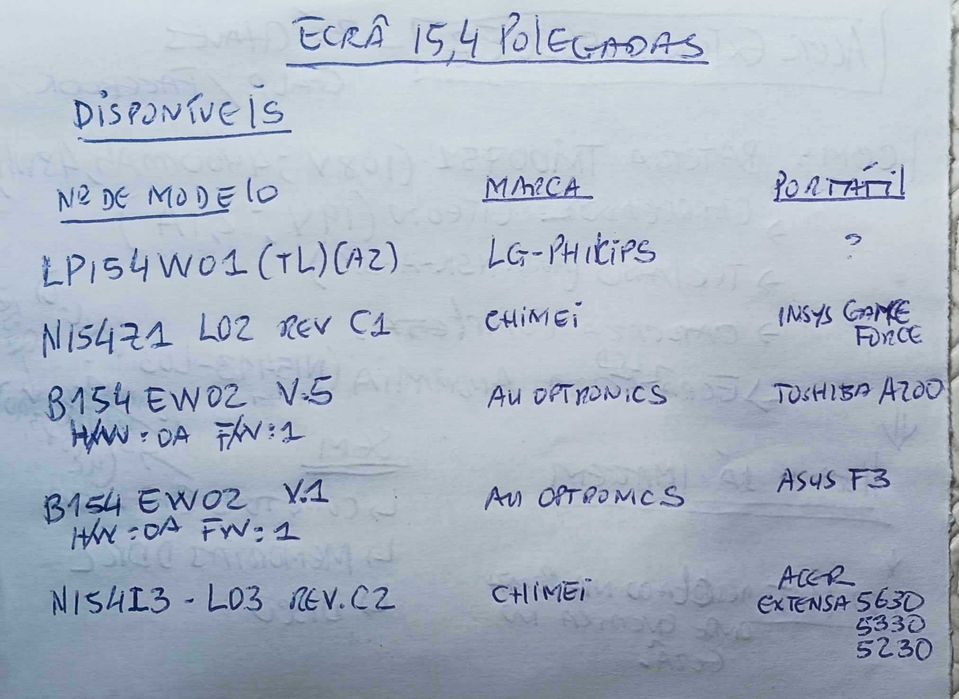 ECRÃ 15,4 POLEGADAS
DISPONÍVEIS
Nº DE MODELO MARCA PORTÁTIL
LP154W01(TL)(A2) LG-PHILIPS ?
N154Z1 L02 REV C1 CHIMEI INSYS GAME
FORCE
B154EW02 V.5 AU OPTRONICS TOSHIBA A200
H/W:0A F/W:1
B154EW02 V.1 AU OPTRONICS ASUS F3
H/W:0A F/W:1
N154I3-L03 REV.C2 CHIMEI ACER
EXTENSA 5630
5330
5230